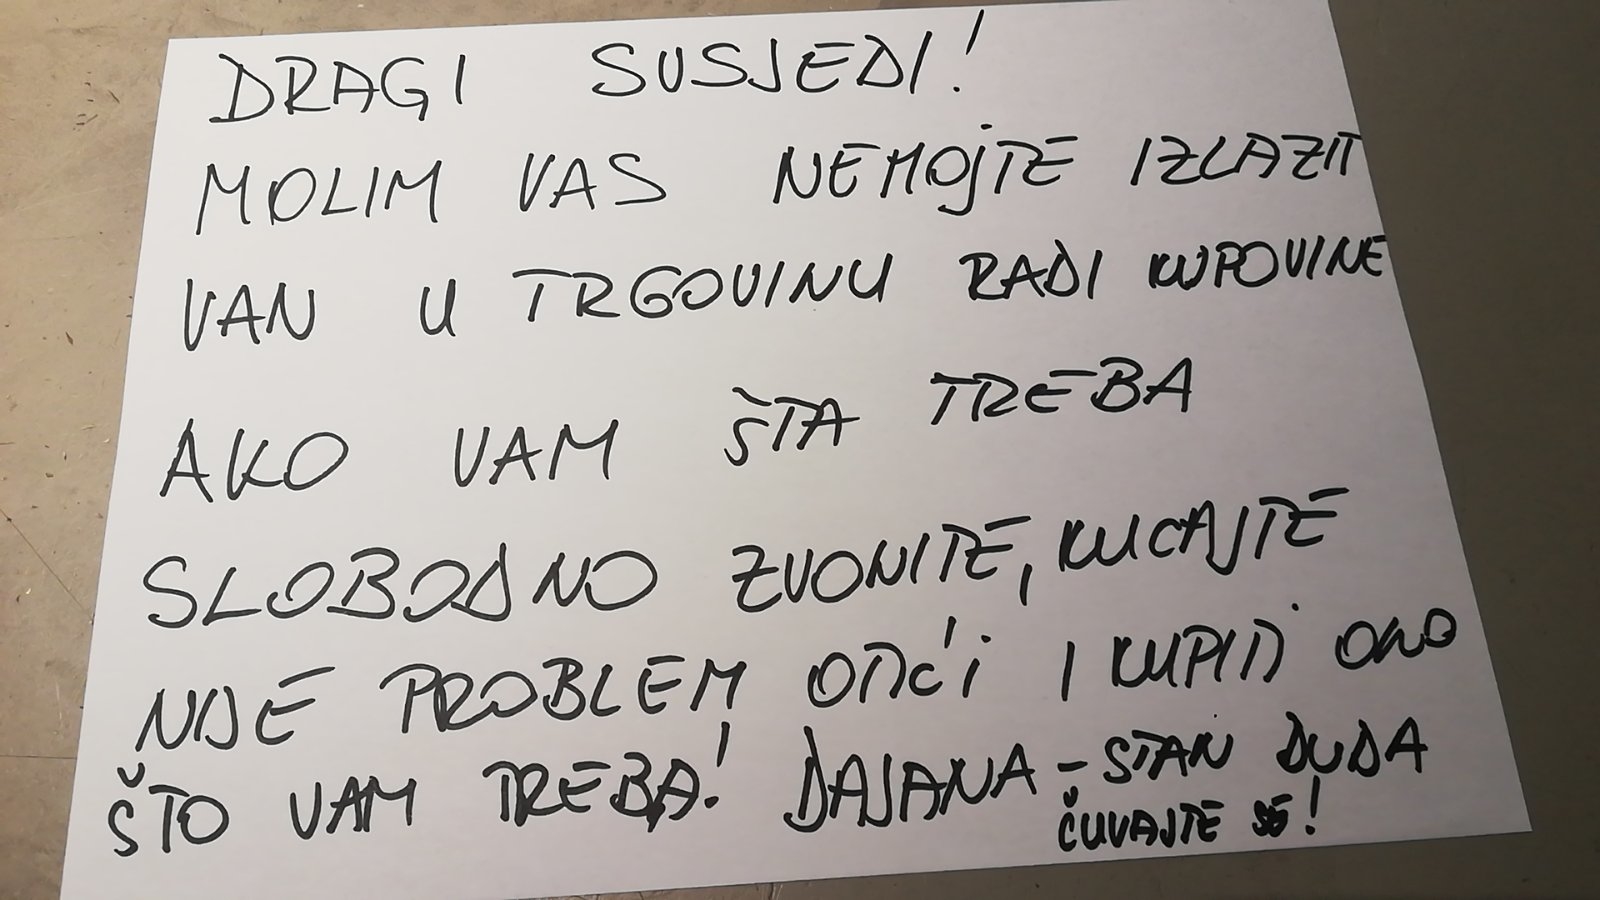 DRAGI SUSJEDI!
MOLIM VAS NEMOJTE IZLAZIT
VAN U TRGOVINU RADI KUPOVINE
AKO VAM ŠTA TREBA
SLOBODNO ZVONITE, KUCAJTE
NIJE PROBLEM OTIĆI I KUPITI ONO
ŠTO VAM TREBA! DAJANA - STAN DUDA
ČUVAJTE SE!